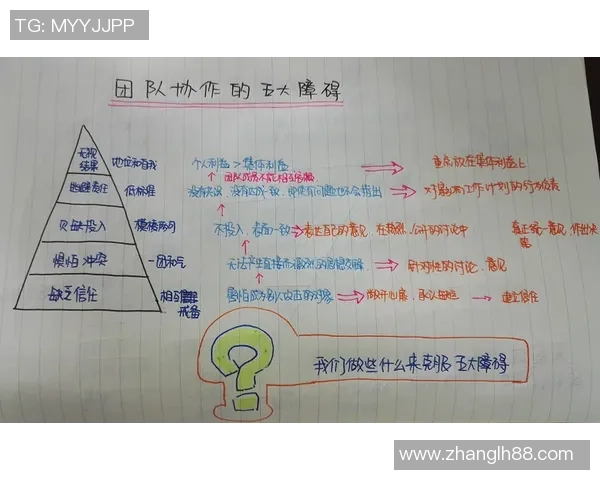 TG: MYYJJPP
团队协作的五大障碍
无视结果 地位和自我 个人利益 > 集体利益 重点放在集体利益上
团队成员不能相互
逃避责任 低标准 没有 没有达成一致, 即使有问题也不会指出 对 工作计划的 负责
欠缺投入 模棱两可 不投入, 表面一致 表达自己的意见, 在 公开的讨论中 真正统一意见, 作出决策
惧怕冲突 一团和气 无法产生直接而激烈的思想交锋 针对性的讨论, 意见
缺乏信任 相互 戒备 害怕成为别人攻击的对象 敞开心扉, 承认 建立信任
我们做些什么来克服五大障碍
www.zhanglh88.com